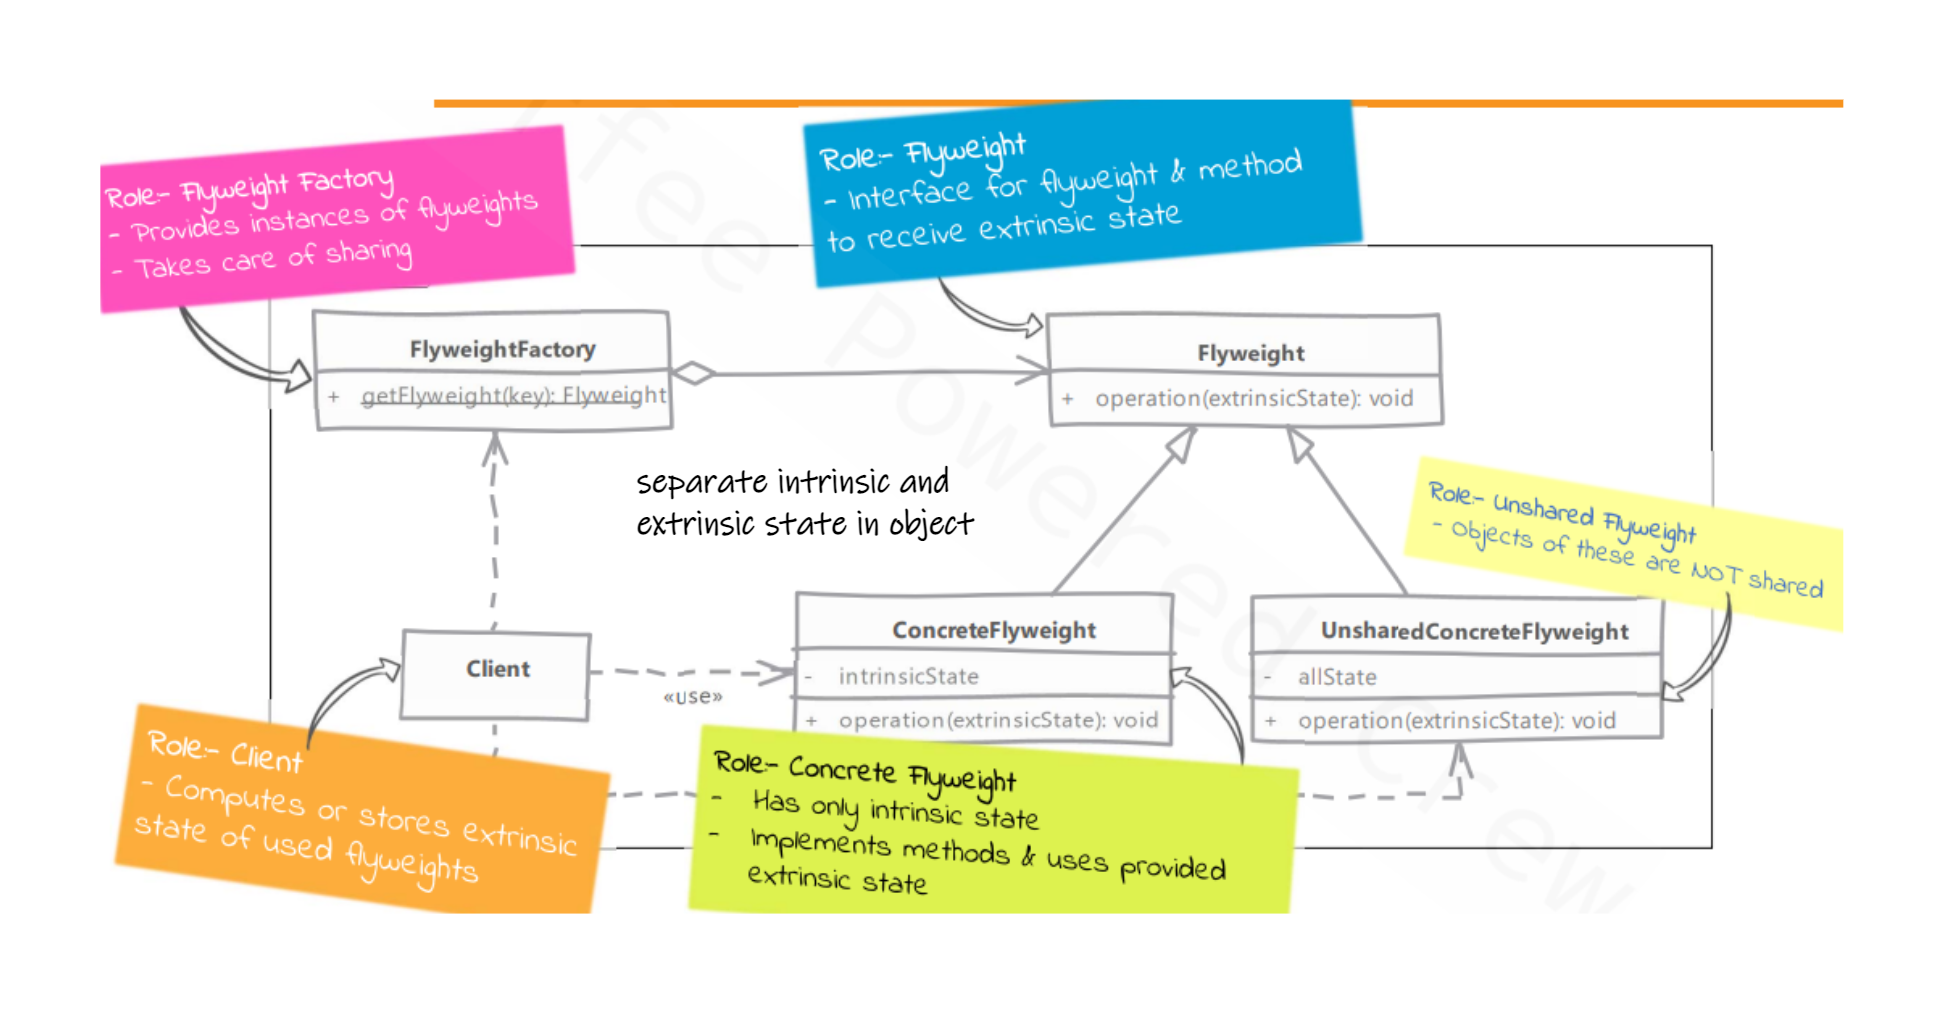 Role:- Flyweight Factory
- Provides instances of flyweights
- Takes care of sharing
Role:- Flyweight
- Interface for flyweight & method
to receive extrinsic state
FlyweightFactory
+ getFlyweight(key): Flyweight
Flyweight
+ operation(extrinsicState): void
separate intrinsic and
extrinsic state in object
Role:- Unshared Flyweight
- Objects of these are NOT shared
Client
«use»
ConcreteFlyweight
- intrinsicState
+ operation(extrinsicState): void
UnsharedConcreteFlyweight
- allState
+ operation(extrinsicState): void
Role:- Client
- Computes or stores extrinsic
state of used flyweights
Role:- Concrete Flyweight
- Has only intrinsic state
- Implements methods & uses provided
extrinsic state
ffee Powered Crew